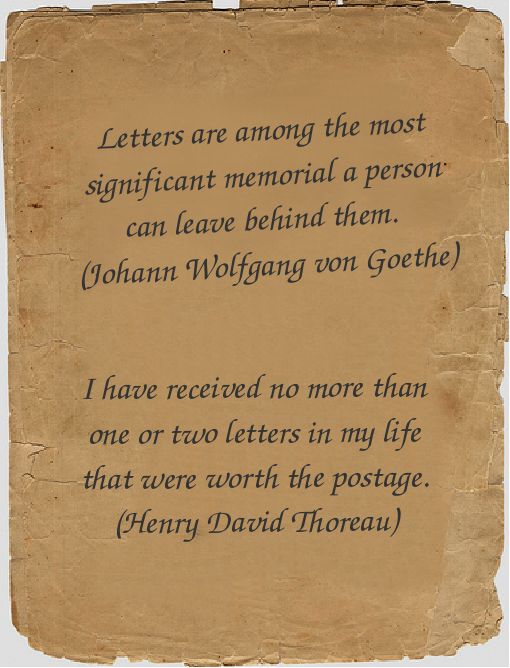 Letters are among the most
significant memorial a person
can leave behind them.
(Johann Wolfgang von Goethe)
I have received no more than
one or two letters in my life
that were worth the postage.
(Henry David Thoreau)